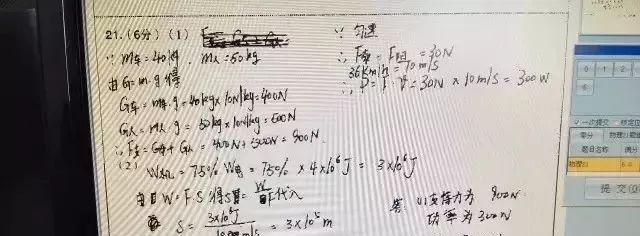 21.(6分)(1)
∵ m车=40kg, m人=50kg
由G=m·g得
G车=m车·g=40kg×10N/kg=400N
G人=m人·g=50kg×10N/kg=500N
∴F支=G车+G人=400N+500N=900N
(2)
W机=75% W电=75%×4×10⁶J=3×10⁶J
由 W=F·S 得S=
代入
S=3×10⁶J
=3×10⁵m
∵匀速
∴F牵=F阻=30N
36km/h=10m/s
∴P=F·V=30N×10m/s=300W
答:(1)支持力为 900N
功率为300W
0 1 2
6
一次提交
零分
物理21题
题目名称 满分
物理21 6.0
提交(Q